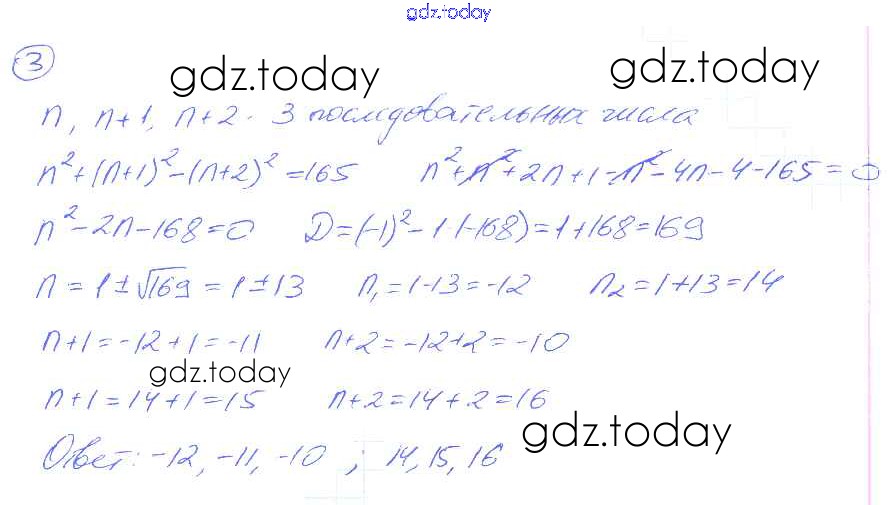 gdz.today
3
gdz.today gdz.today
n, n+1, n+2 · 3 последовательных числа
n²+(n+1)²-(n+2)²=165 n²+n²+2n+1-n²-4n-4-165=0
n²-2n-168=0 D=(-1)²-1·(-168)=1+168=169
n=1±√169=1±13 n₁=1-13=-12 n₂=1+13=14
n+1=-12+1=-11 n+2=-12+2=-10
gdz.today
n+1=14+1=15 n+2=14+2=16
gdz.today
Ответ: -12, -11, -10 ; 14, 15, 16